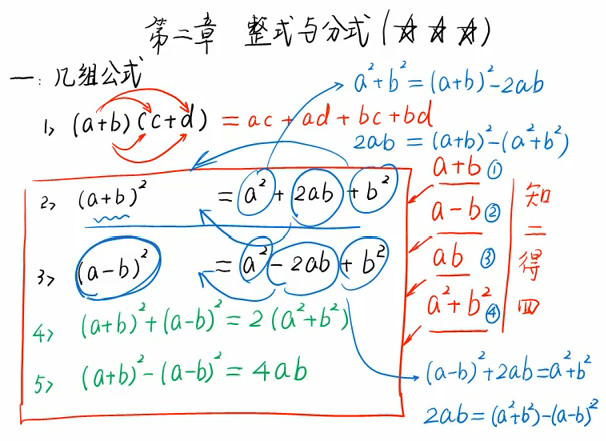 第二章 整式与分式(☆☆☆)
一: 几组公式
a²+b²=(a+b)²-2ab
1, (a+b)(c+d) = ac+ad+bc+bd
2ab = (a+b)²-(a²+b²)
2, (a+b)² = a²+2ab+b²
3, (a-b)² = a²-2ab+b²
4, (a+b)²+(a-b)²=2(a²+b²)
5, (a+b)²-(a-b)²=4ab
a+b ①
a-b ②
ab ③
a²+b² ④
知二得四
(a-b)²+2ab=a²+b²
2ab=(a²+b²)-(a-b)²